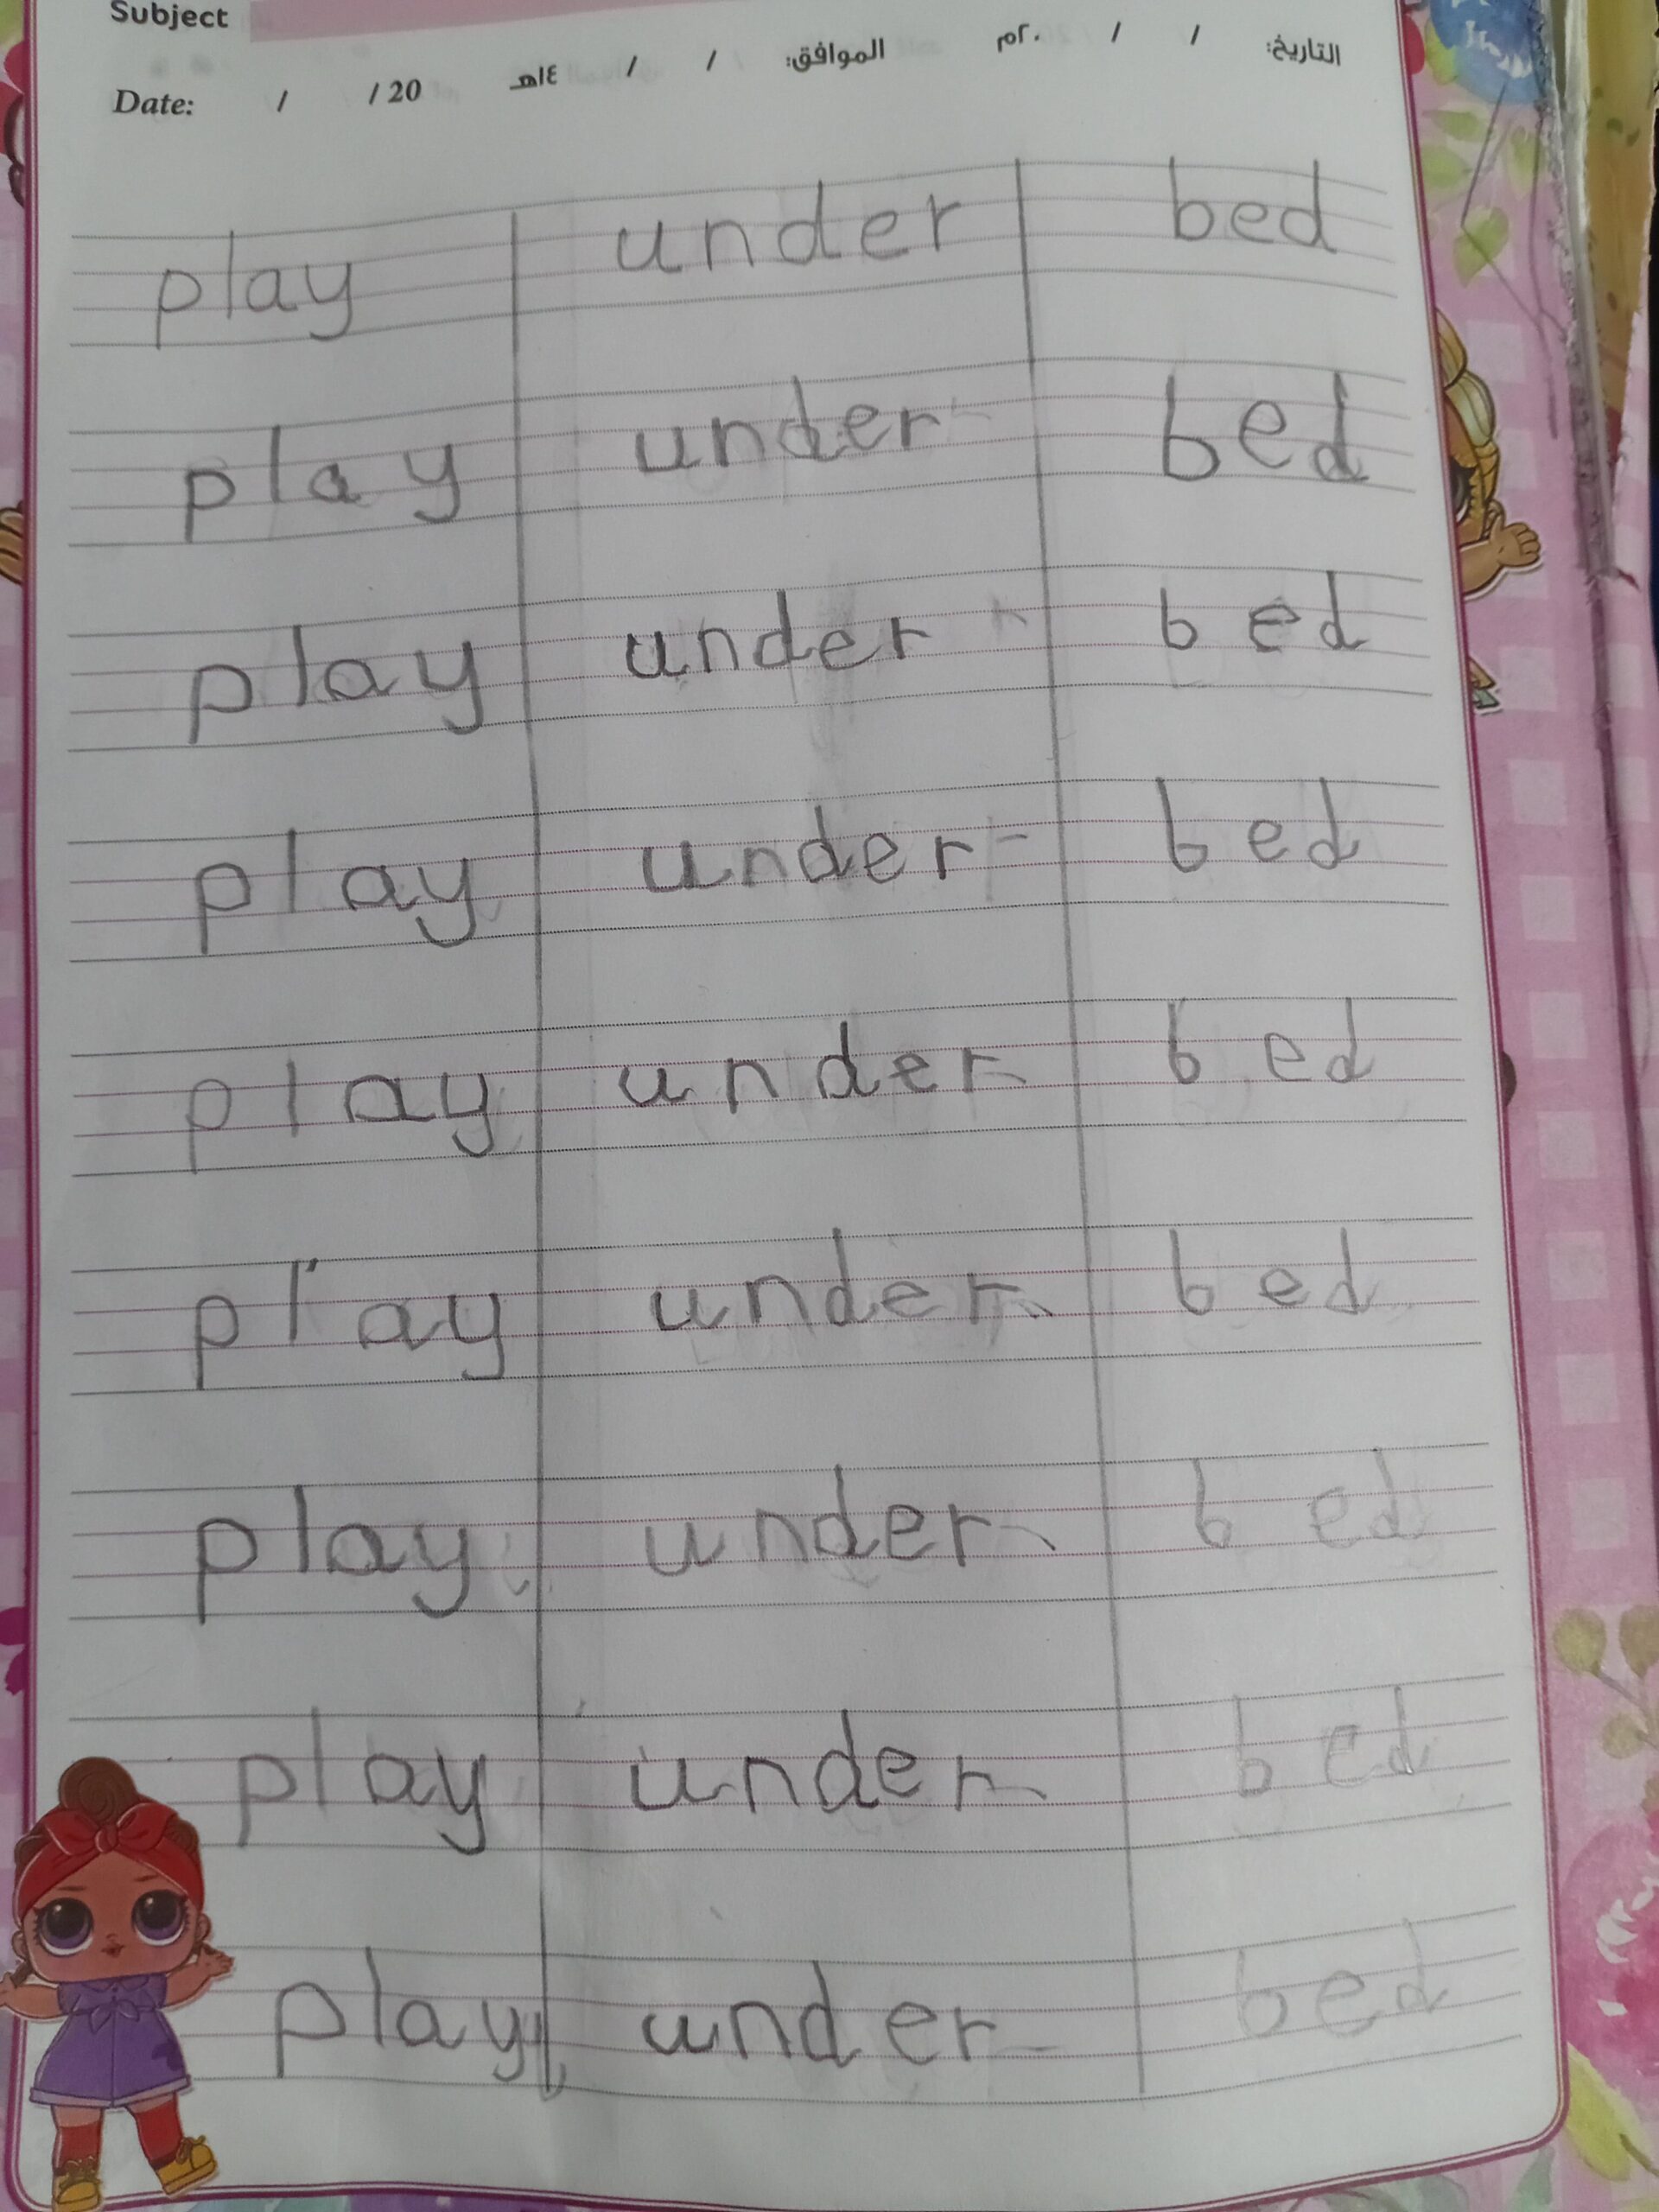 Subject
التاريخ: / / ٢٠م الموافق: / / ١٤هـ
Date: / / 20
play under bed
play under bed
play under bed
play under bed
play under bed
play under bed
play under bed
play under bed
play under bed